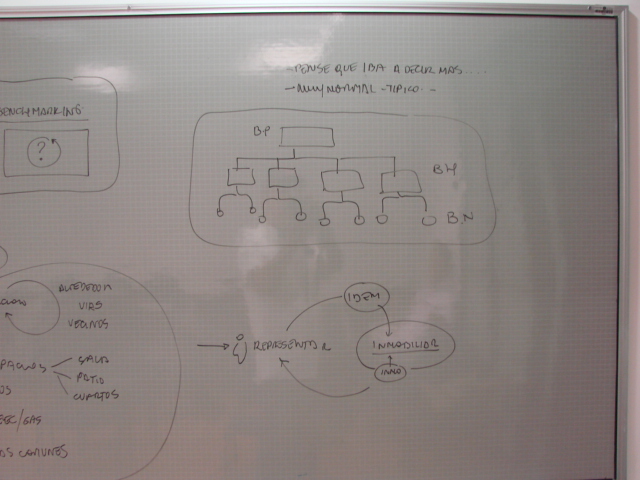 - PENSE QUE IBA A DECIR MAS....
- MUY NORMAL - TIPICO -
BENCHMARKING
?
B.P
B.H
B.N
VIAS
VECINOS
SALA
PATIO
CUARTOS
/GAS
OS COMUNES
REPRESENTAR
IDEM
INMOBILIAR
INNO